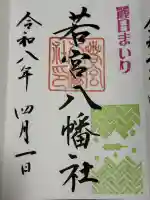 朔日まいり
若宮八幡社
令和八年 四月一日